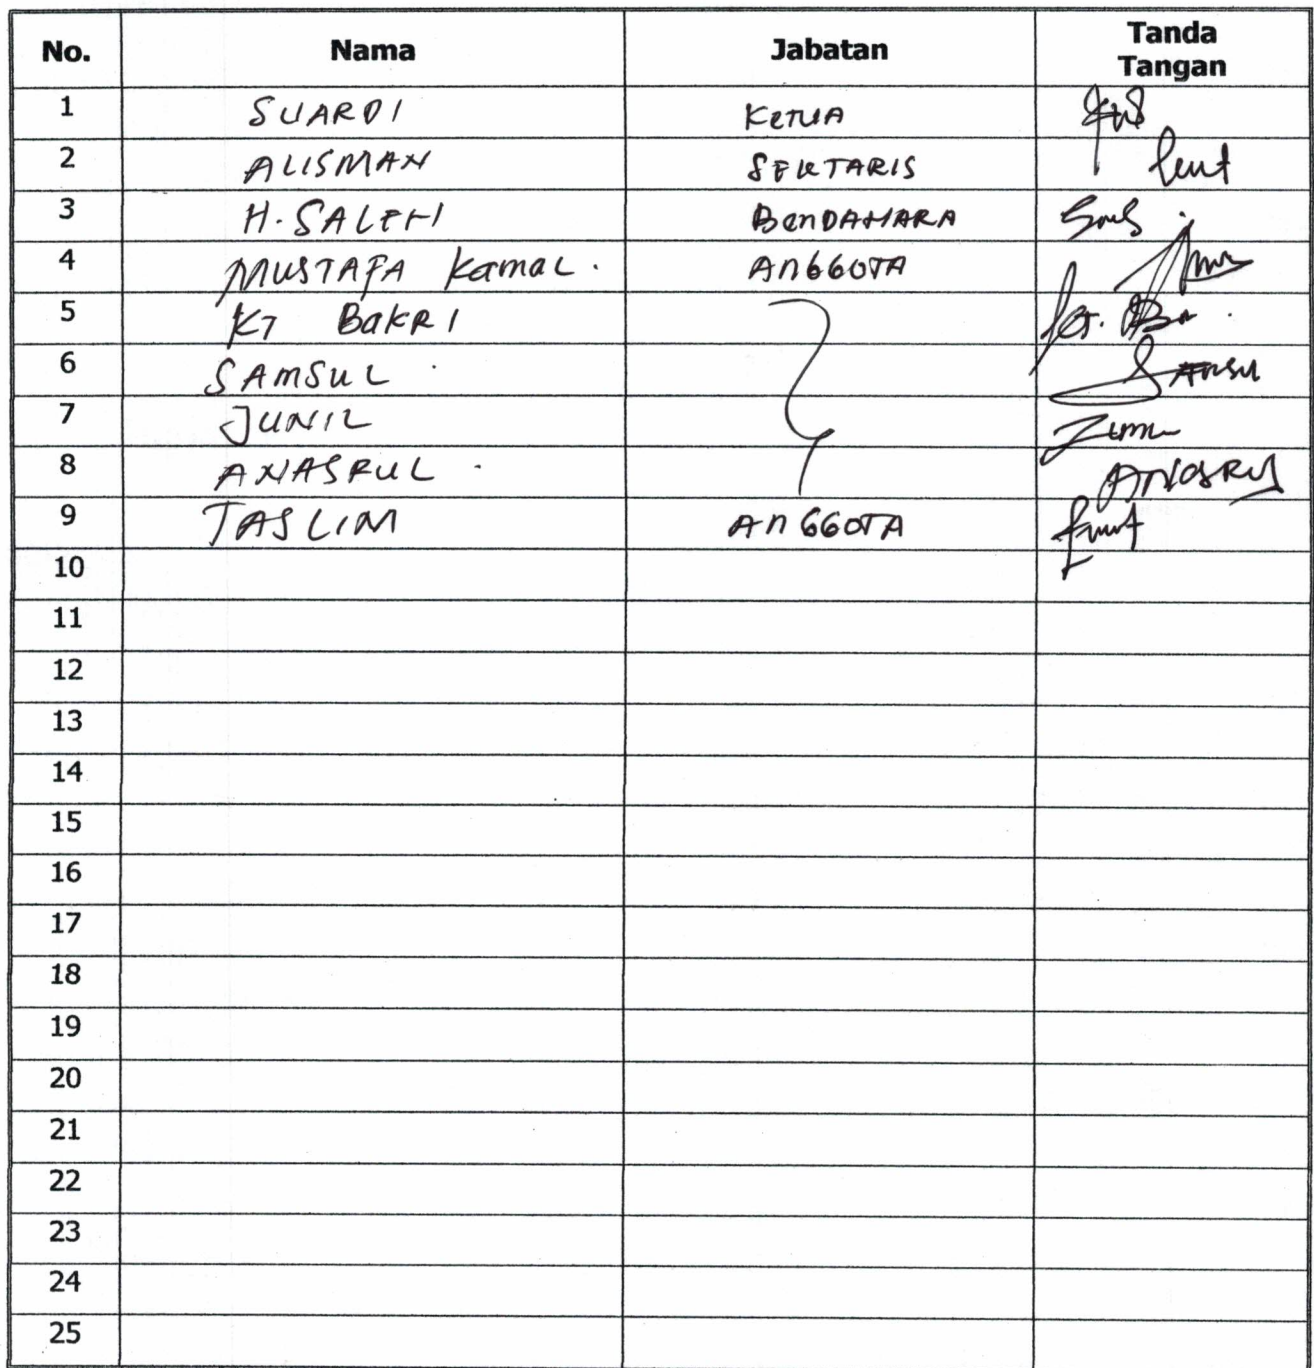 No. Nama Jabatan Tanda Tangan
1 SUARDI KETUA
2 ALISMAN SEKTARIS
3 H. SALEH BENDAHARA
4 MUSTAFA Kamal. ANGGOTA
5 KT BAKRI
6 SAMSUL
7 JUNIL
8 ANASRUL
9 TASLIM ANGGOTA
10
11
12
13
14
15
16
17
18
19
20
21
22
23
24
25